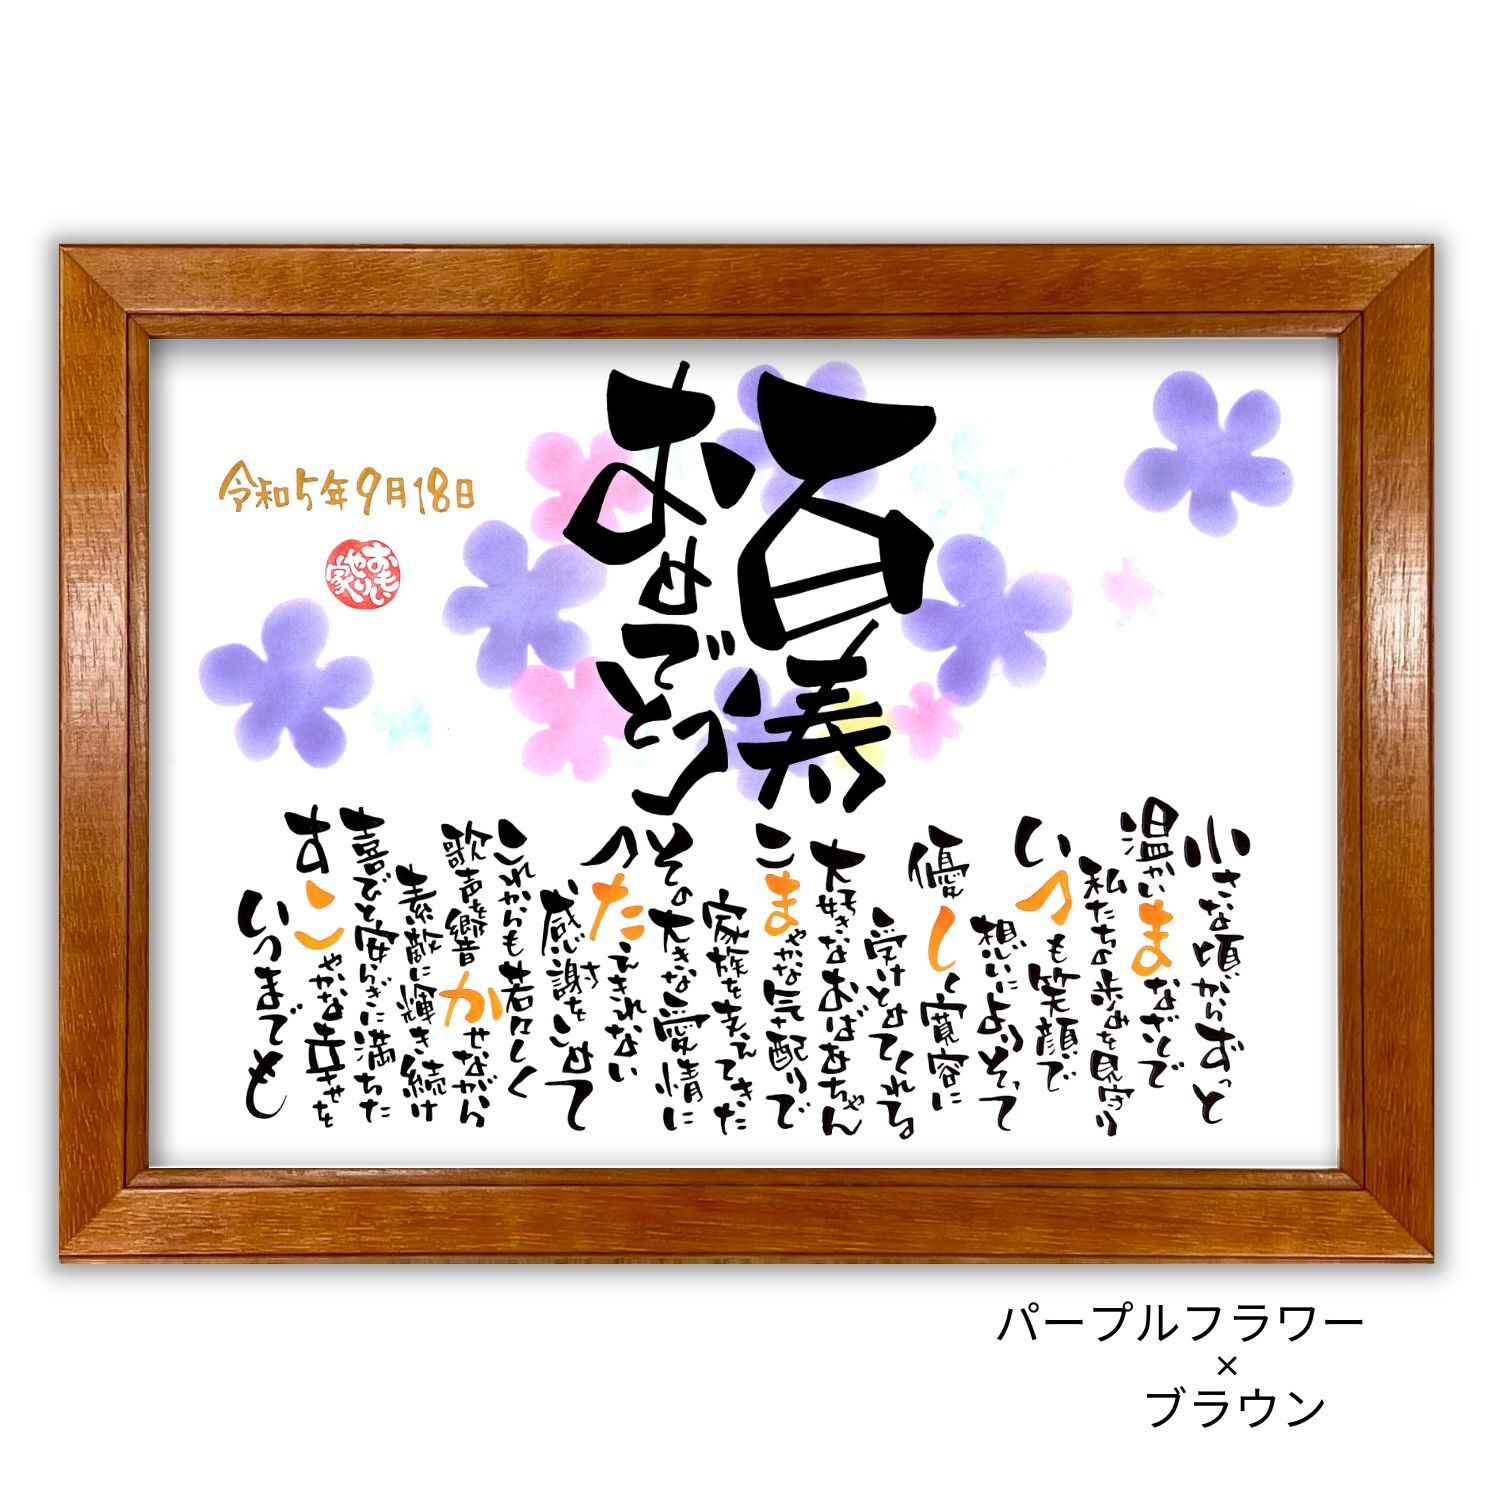 百寿
おめでとう
令和5年9月18日
おもいやり家
小さな頃からずっと
温かいまなざしで
私たちの歩みを見守り
いつも笑顔で
想いによりそって
優しく寛容に
受けとめてくれる
大好きなおばあちゃん
こまやかな気配りで
家族を支えてきた
その大きな愛情に
つたえきれない
感謝をこめて
これからも若々しく
歌声を響かせながら
素敵に輝き続け
喜びと安らぎに満ちた
すこやかな幸せを
いつまでも
パープルフラワー
×
ブラウン